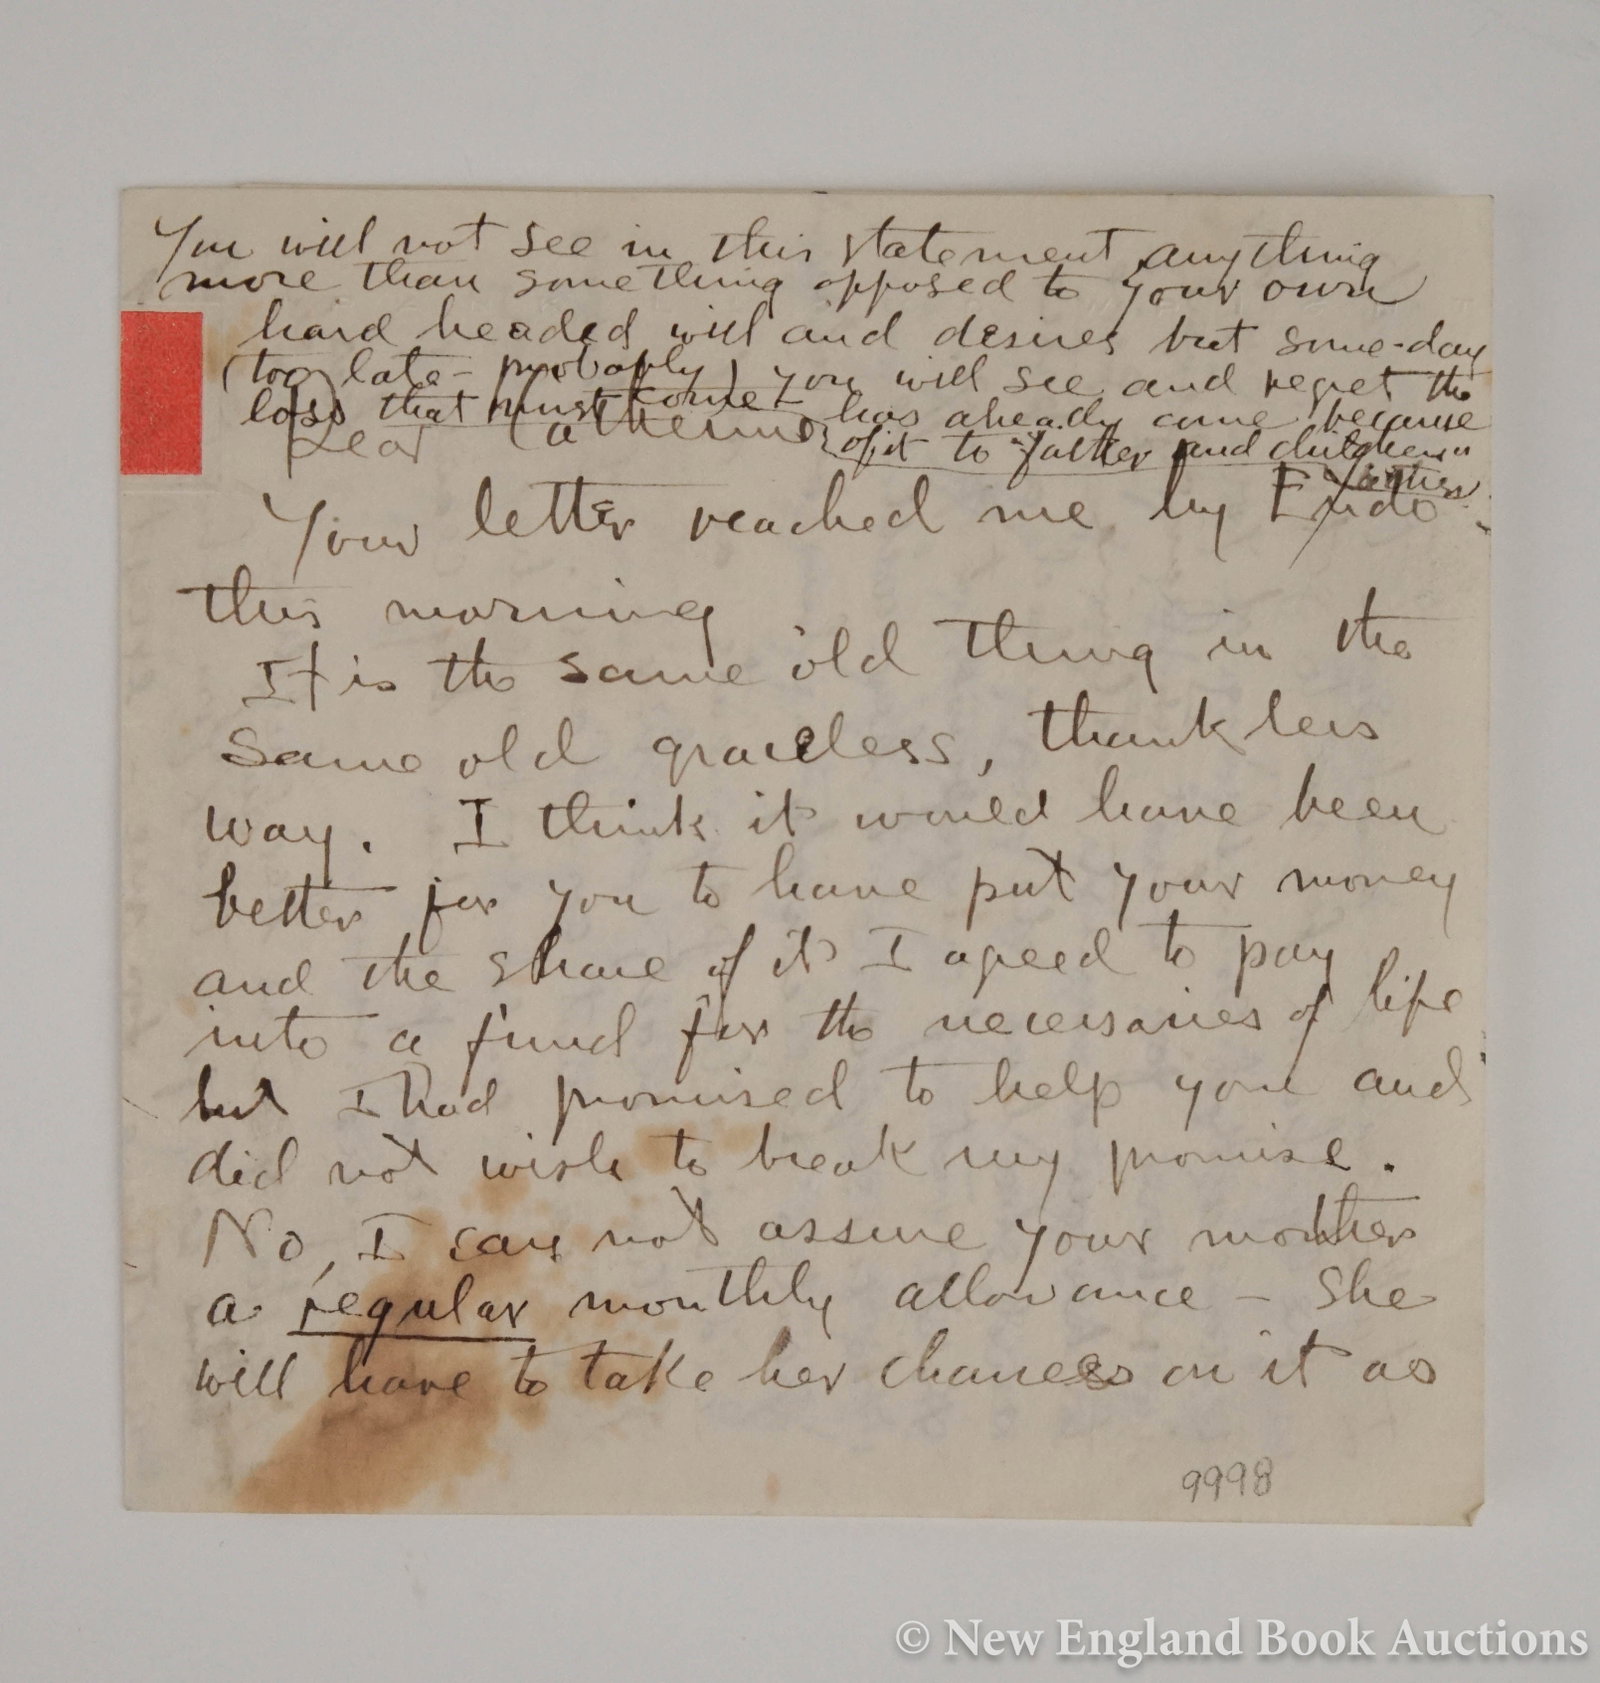 You will not see in this statement anything
more than something opposed to your own
hard headed will and desires but some-day
(too late - probably) you will see and regret the
loss that must come - has already come because
of it to "father and children"
Dear Catherine
Your letter reached me by Endo
this morning
It is the same old thing in the
same old graceless, thankless
way. I think it would have been
better for you to have put your money
and the share of it I agreed to pay
into a fund for the necessaries of life
but I had promised to help you and
did not wish to break my promise.
No, I can not assure your mother
a regular monthly allowance - She
will have to take her chances on it as
9998
© New England Book Auctions